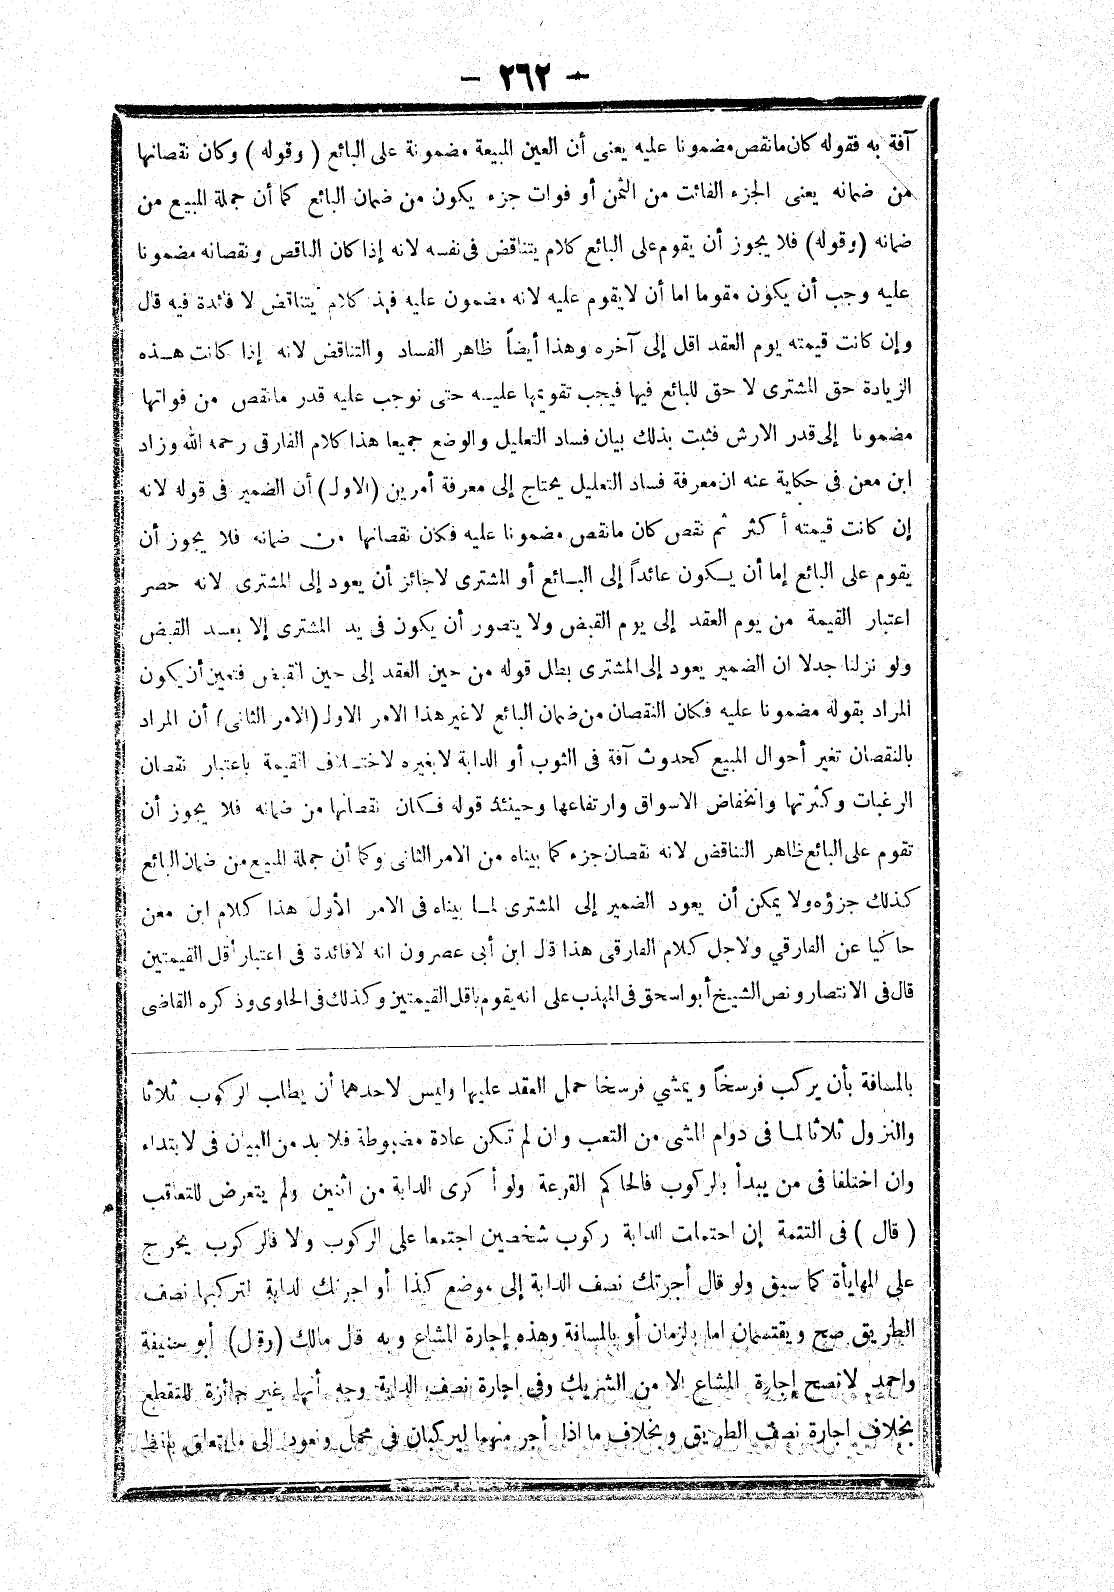 - ٢٦٢ -
آفة به فقوله كان مانقص مضمونا عليه يعنى أن العين المبيعة مضمونة على البائع ( وقوله ) وكان نقصانها
من ضمانه يعنى الجزء الفائت من الثمن أو فوات جزء يكون من ضمان البائع كما أن جملة المبيع من
ضمانه (وقوله) فلا يجوز أن يقوم على البائع كلام يتناقض فى نفسه لانه إذا كان الناقص ونقصانه مضمونا
عليه وجب أن يكون مقوما اما أن لا يقوم عليه لانه مضمون عليه فهذ كلام يتناقض لا فائدة فيه قال
وإن كانت قيمته يوم العقد اقل إلى آخره وهذا أيضاً ظاهر الفساد والتناقض لانه إذا كانت هـذه
الزيادة حق المشترى لا حق للبائع فيها فيجب تقويمها عليـه حتى نوجب عليه قدر مانقص من فواتها
مضمونا إلى قدر الارش فثبت بذلك بيان فساد التعليل والوضع جميعا هذا كلام الفارقى رحمه الله وزاد
ابن معن فى حكاية عنه ان معرفة فساد التعليل يحتاج إلى معرفة أمرين (الاول) أن الضمير فى قوله لانه
إن كانت قيمته أكثر ثم نقص كان مانقص مضمونا عليه فكان نقصانها من ضمانه فلا يجوز أن
يقوم على البائع إما أن يـكون عائداً إلى البـائع أو المشترى لاجائز أن يعود إلى المشترى لانه حصر
اعتبار القيمة من يوم العقد إلى يوم القبض ولا يتصور أن يكون فى يد المشترى إلا بعـد القبض
ولو نزلنا جدلا ان الضمير يعود إلى المشترى بطل قوله من حين العقد إلى حين القبض فتعين أن يكون
المراد بقوله مضمونا عليه فكان النقصان من ضمان البائع لاغير هذا الامر الاول (الامر الثانى) أن المراد
بالنقصان تغير أحوال المبيع كحدوث آفة فى الثوب أو الدابة لا بغيره لاختـلاف القيمة باعتبار نقصان
الرغبات وكثرتها وانخفاض الاسواق وارتفاعها وحينئذ قوله فـكان نقصانها من ضمانه فلا يجوز أن
تقوم على البائع ظاهر التناقض لانه نقصان جزء كما بيناه من الامر الثانى وكما أن جملة المبيع من ضمان البائع
كذلك جزؤه ولا يمكن أن يعود الضمير إلى المشترى لمـا بيناه فى الامر الأول هذا كلام ابن معن
حاكيا عن الفارقي ولاجل كلام الفارقى هذا قال ابن أبى عصرون انه لا فائدة فى اعتبار أقل القيمتين
قال فى الانتصار ونص الشيخ أبو اسحق فى المهذب على انه يقوم باقل القيمتين وكذلك فى الحاوى وذكره القاضى
بالمسافة بأن يركب فرسخاً ويمشي فرسخا حمل العقد عليها وليس لاحدهما أن يطلب الركوب ثلاثا
والنزول ثلاثا لمـا فى دوام المشى من التعب وان لم تكن عادة مضبوطة فلا بد من البيان فى لابتداء
وان اختلفا فى من يبدأ بالركوب فالحاكم القرعة ولو أكرى الدابة من اثنين ولم يتعرض للتعاقب
( قال ) فى التتمة إن احتملت الدابة ركوب شخصين اجتمعا على الركوب ولا فالركوب يخرج
على المهايأة كما سبق ولو قال أجرتك نصف الدابة إلى موضع كذا أو اجرتك لدابة لتركبها نصف
الطريق صح ويقتسمان اما بالزمان أو بالمسافة وهذه إجارة المشاع وبه قال مالك (وقال) أبو حنيفة
واحمد لا تصح إجارة المشاع الا من الشريك وفى اجارة نصف الدابة وجه أنها غير جائزة للتقطع
بخلاف اجارة نصف الطريق وبخلاف ما اذا أجر منهما ليركبان فى محمل ونعود الى ما يتعلق بلفظ